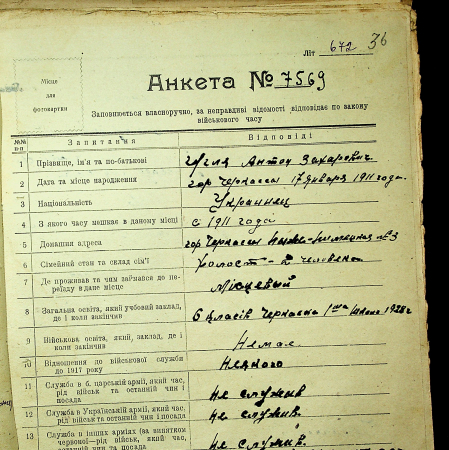 Літ 672 36
Місце
для
фотокартки
Анкета № 7569
Заповнюється власноручно, за неправдиві відомості відповідає по закону
військового часу
№№
п-п
Запитання
Відповіді
1 Прізвище, ім'я та по-батькові
Антон Захарович
2 Дата та місце народження
гор Черкассы 17 января 1911 года
3 Національність
Украинец
4 З якого часу мешкає в даному місці
с 1911 года
5 Домашня адреса
гор Черкассы №3
6 Сімейний стан та склад сім'ї
холост - 2 человека
7 Де проживав та чим займався до пе-
реїзду в дане місце
Місцевый
8 Загальна освіта, який учбовий заклад,
де і коли закінчив
6 класів Черкассы 1ша школа 1928 г
9 Військова освіта, який, заклад, де і
коли закінчив
Немає
10 Відношення до військової служби
до 1917 року
Неякого
11 Служба в б. царській армії, який час,
рід військ та останній чин і
посада
не служив
12 Служба в Українській армії, який час,
рід військ та останній чин і посада
не служив
13 Служба в інших арміях (за винятком
червоної—рід військ, який час,
останній чин та посада
не служив